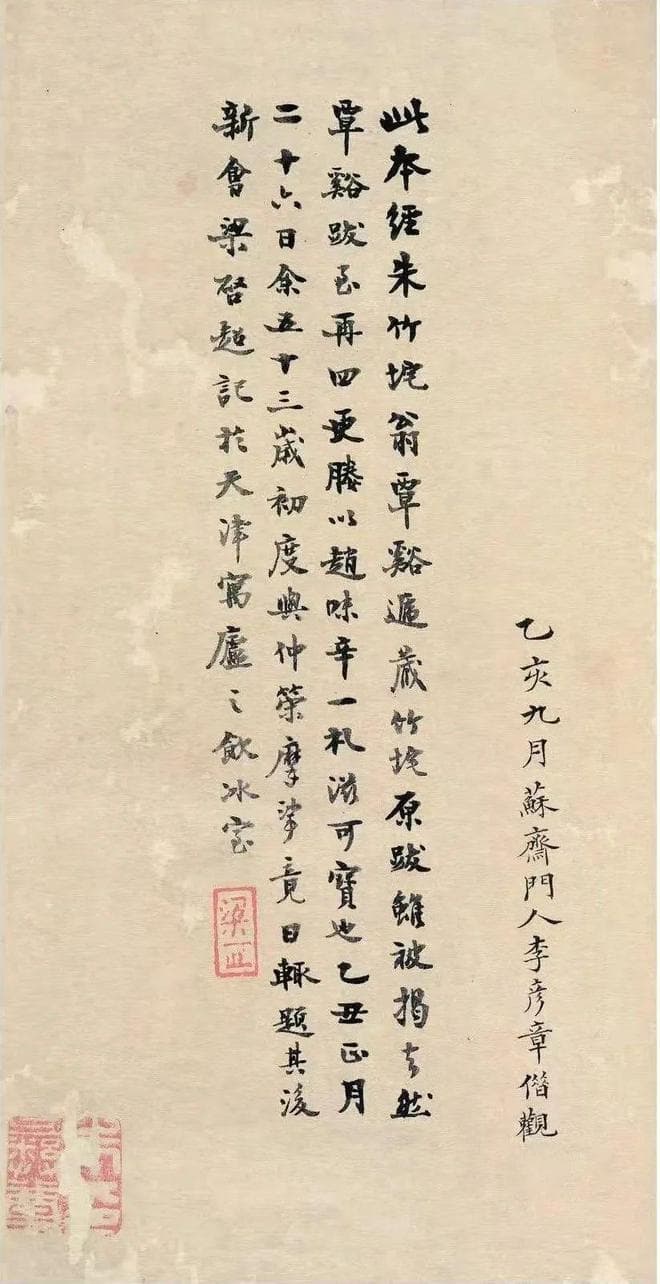 乙亥九月蘇齋門人李彦章借觀
此本經朱竹垞翁覃谿遞藏竹垞原跋雖被揭去然
覃谿跋至再四更媵以趙味辛一札滋可寶也乙丑正月
二十六日余五十三歲初度與仲策摩挲竟日輒題其後
新會梁啓超記於天津寓廬之飲冰室